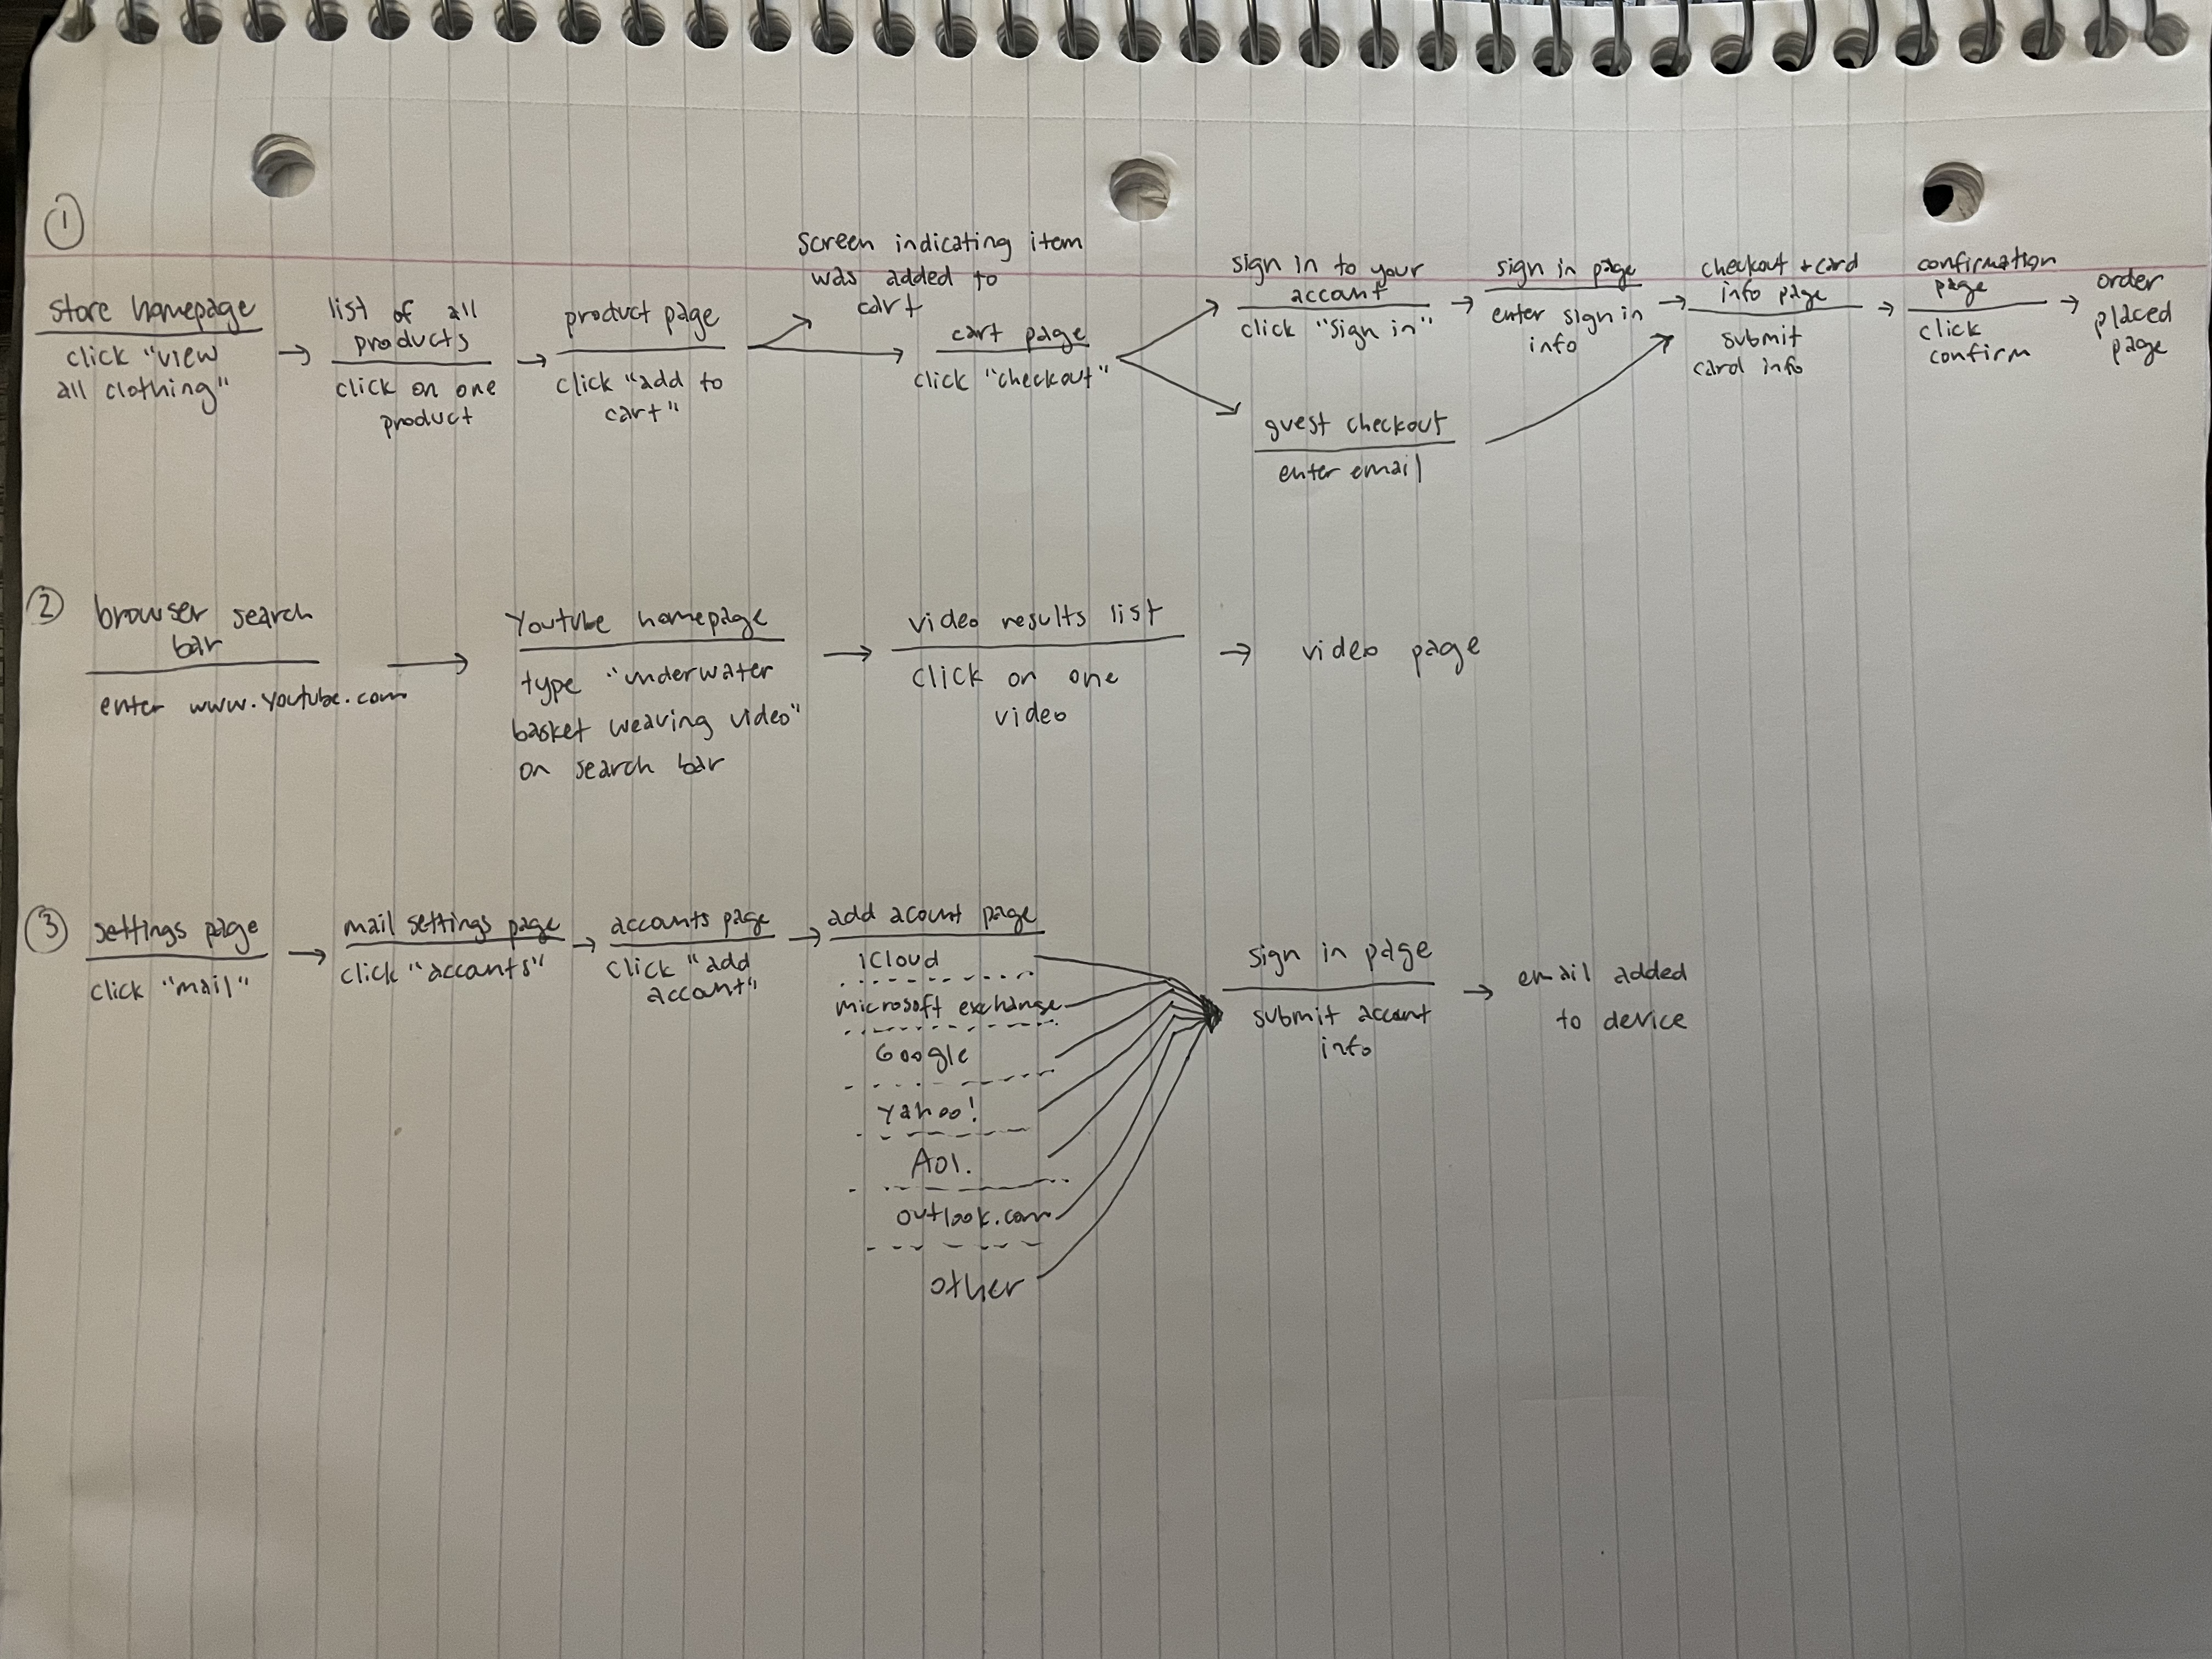 ①
store homepage
click "view
all clothing"
→ list of all
products
click on one
product
→ product page
click "add to
cart"
screen indicating item
was added to
cart
cart page
click "checkout"
sign in to your
account
click "sign in"
→ sign in page
enter sign in
info
guest checkout
enter email
→ checkout + card
info page
submit
card info
→ confirmation
page
click
confirm
→ order
placed
page
②
browser search
bar
enter www.youtube.com
→ Youtube homepage
type "underwater
basket weaving video"
on search bar
→ video results list
click on one
video
→ video page
③
settings page
click "mail"
→ mail settings page
click "accounts"
→ accounts page
click "add
account"
→ add acount page
iCloud
microsoft exchange
Google
Yahoo!
Aol.
outlook.com
other
sign in page
submit account
info
→ email added
to device